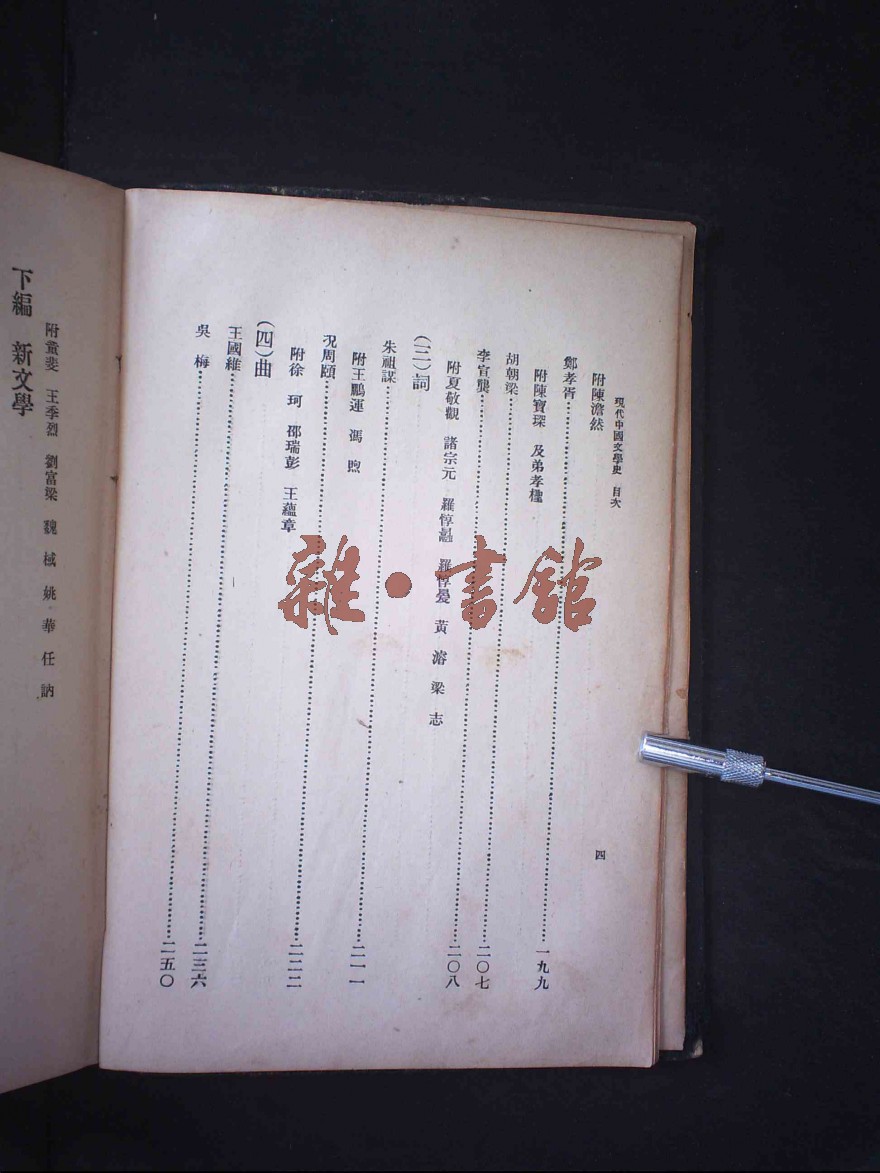 現代中國文學史 目次 四
附陳澹然
鄭孝胥……一九九
附陳寶琛 及弟孝檉
胡朝梁……二〇七
李宣龔……二〇八
附夏敬觀 諸宗元 羅惇曧 羅惇㬊 黃 濬 梁 志
(三)詞
朱祖謀……二一一
附王鵬運 馮 煦
況周頤……二二二
附徐 珂 邵瑞彭 王蘊章
(四)曲
王國維……二三六
吳 梅……二五〇
附童斐 王季烈 劉富梁 魏 棫 姚 華 任 訥
下編 新文學
雜·書館